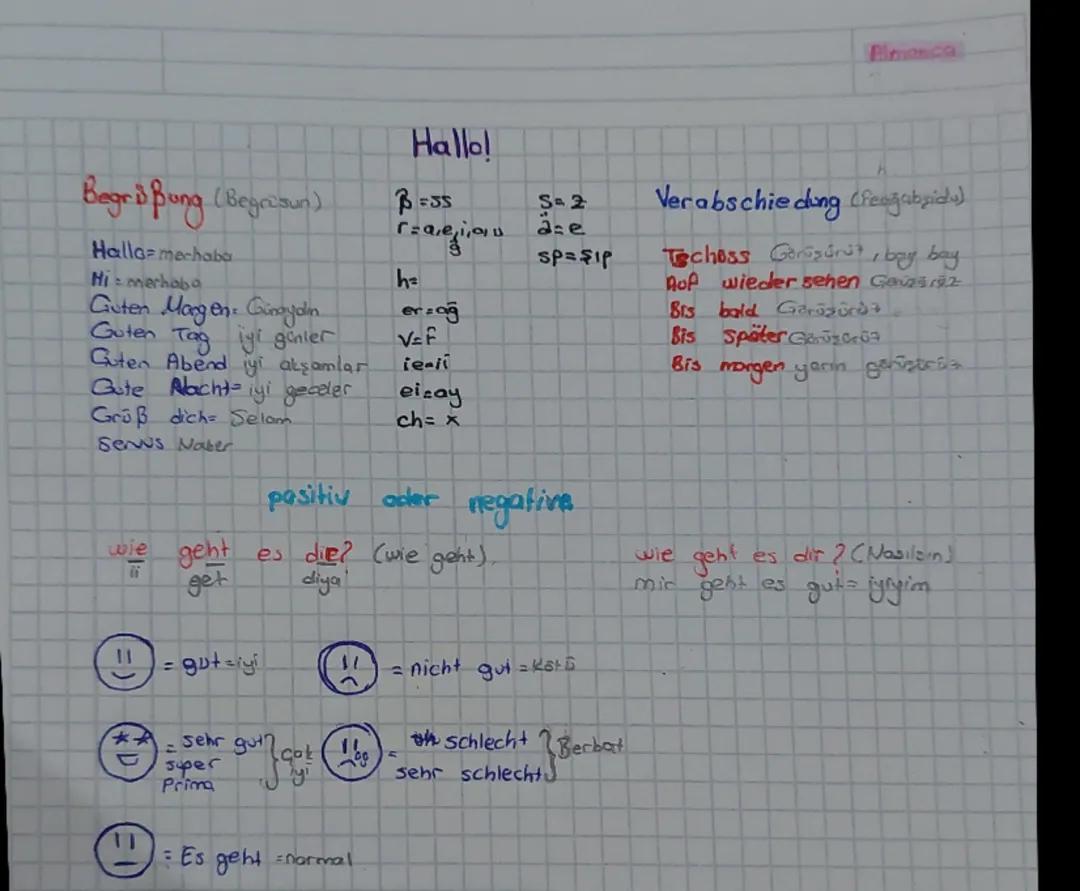 Almanca
Hallo!
Begrüßung (Begrüsun)
Hallo= merhaba
Hi = merhaba
Guten Morgen= Günaydın
Guten Tag iyi günler
Guten Abend iyi akşamlar
Gute Nacht= iyi geceler
Grüß dich= Selam
Servus Naber
β = ss
r = a,e,i,o,u
ğ
h=
er=ağ
v=f
ie=ii
ei=ay
ch= x
S= z
ä= e
sp= şıp
Verabschiedung
Tschoss Görüşürüz, bay bay
Auf wieder sehen Görüşürüz
Bis bald Görüşürüz
Bis später Görüşürüz
Bis morgen yarın görüşürüz
positiv oder negative
wie geht es die? (wie geht)
ii get diya
wie geht es dir? (Nasılsın)
mir geht es gut= iyiyim
= gut = iyi
= nicht gut = kötü
= sehr gut
super
Prima
} çok iyi
= schlecht
sehr schlecht
} Berbat
= Es geht = normal